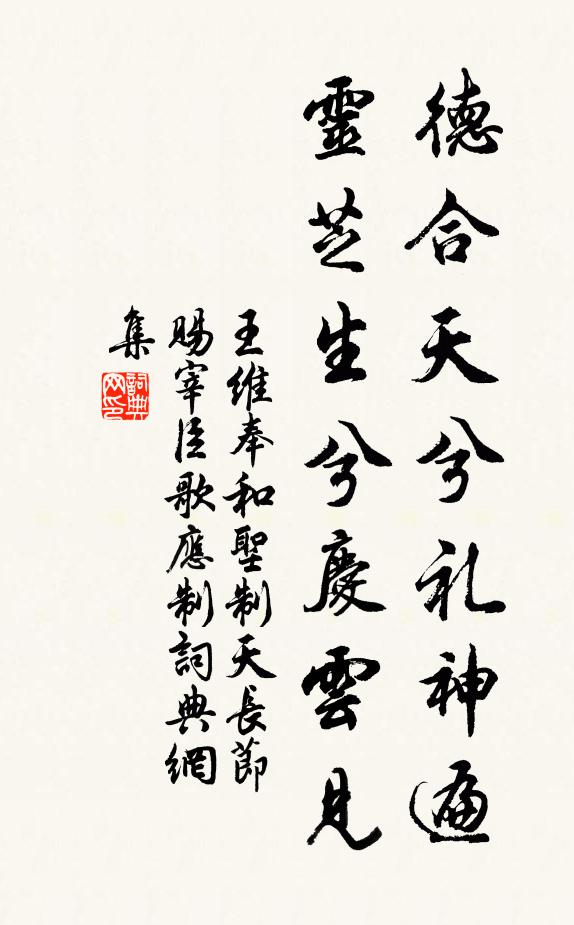 德合天兮礼神遍
靈芝生兮慶雲見
王維奉和聖制天長節
賜宰臣歌應制詞典網
集
詞典
网印